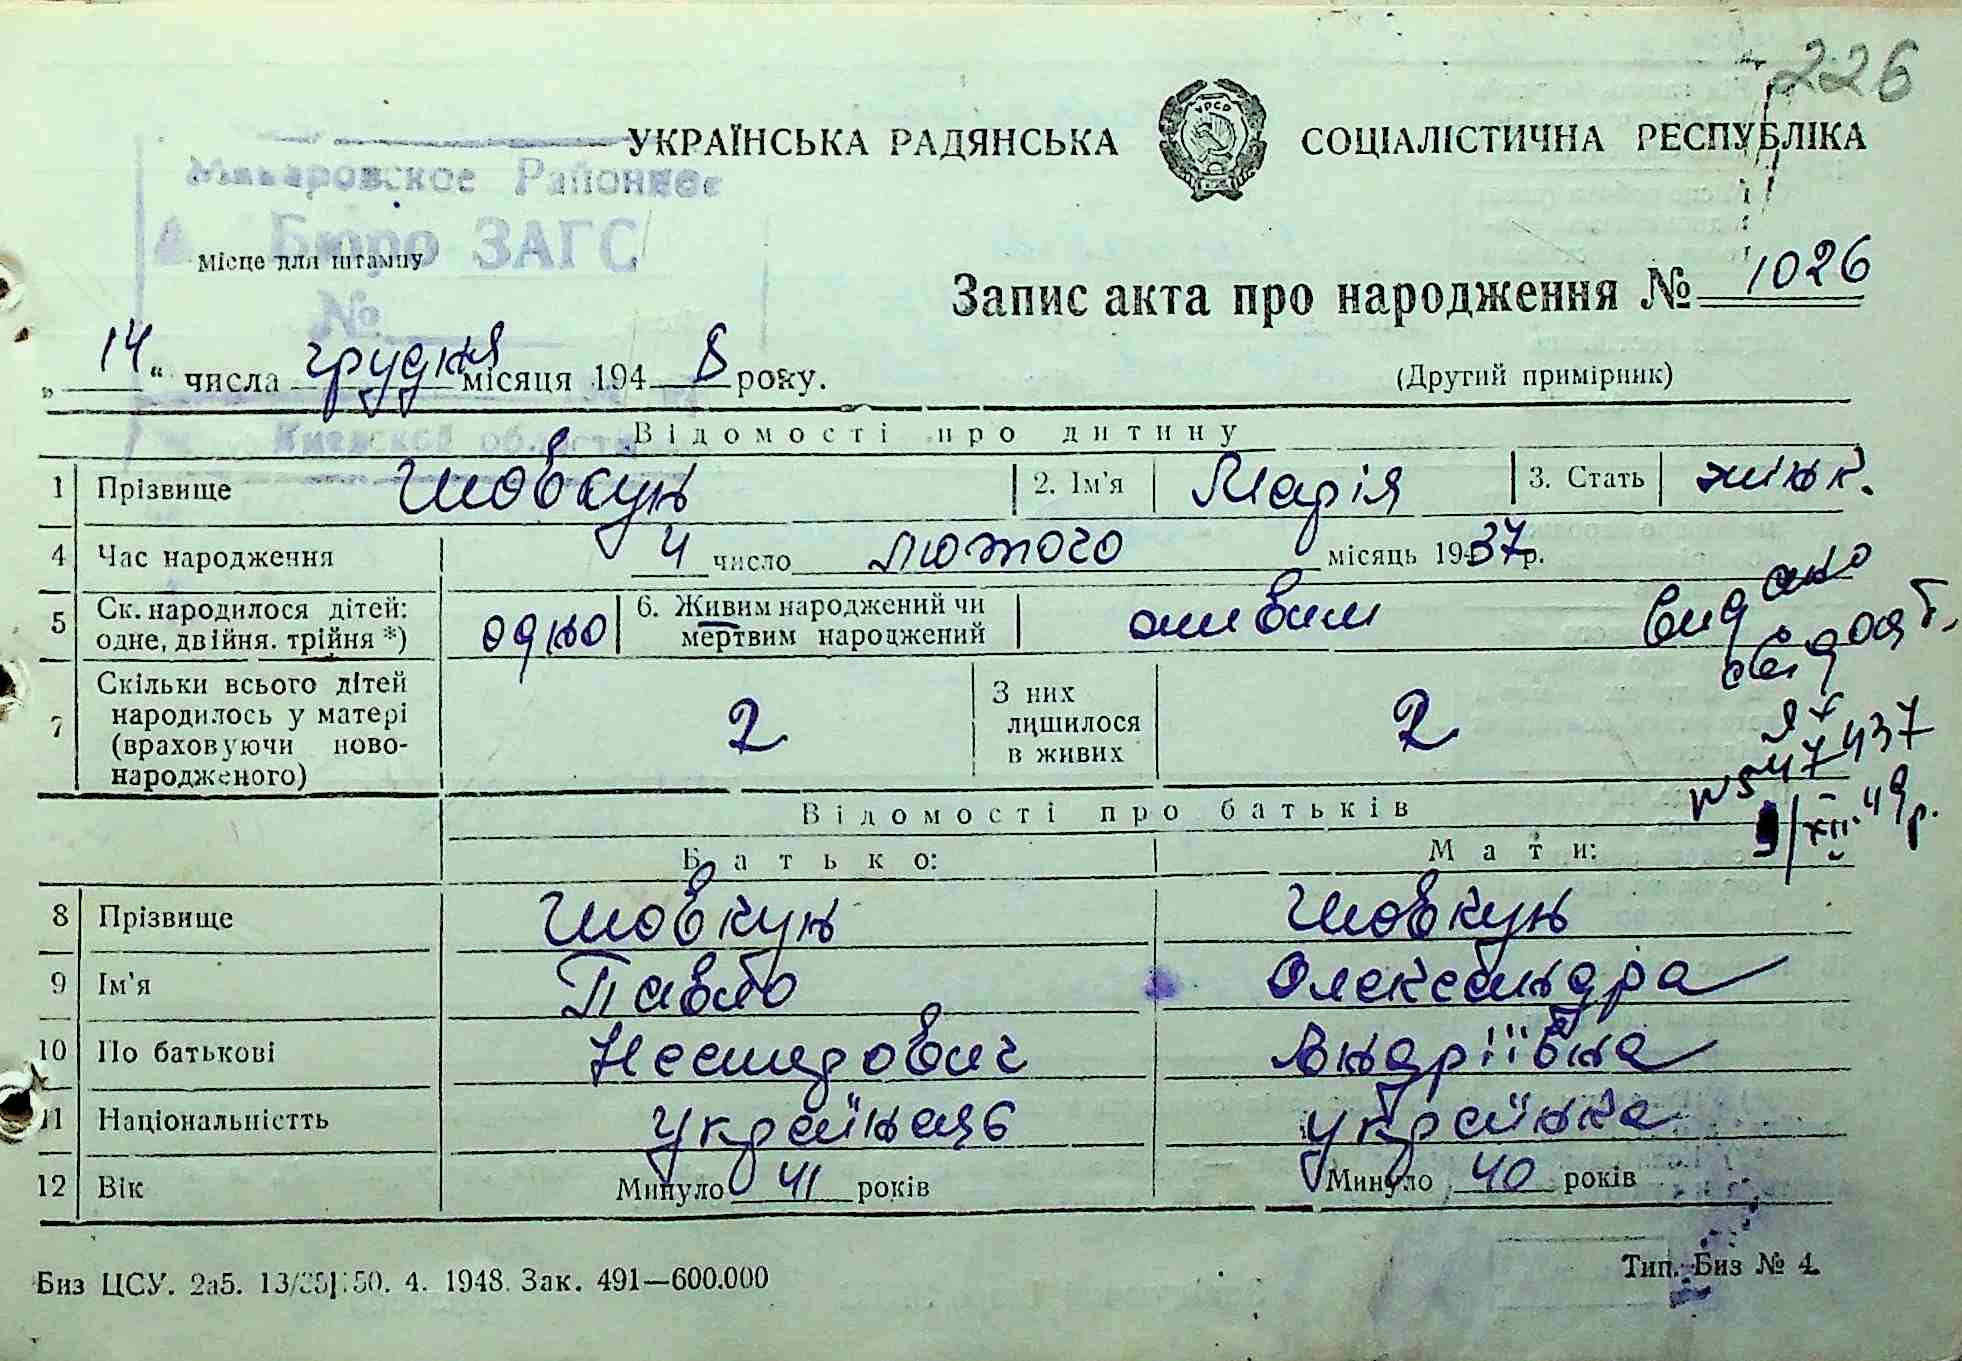 226
УКРАЇНСЬКА РАДЯНСЬКА СОЦІАЛІСТИЧНА РЕСПУБЛІКА
УРСР
Макаровское Районное
Бюро ЗАГС
Місце для штампу
№
Киевской области
Запис акта про народження № 1026
„14“ числа грудня місяця 1948 року.
(Другий примірник)
Відомості про дитину
1 Прізвище Шовкун 2. Ім'я Марія 3. Стать жінк.
4 Час народження 4 число лютого місяць 1937р.
5 Ск. народилося дітей: одне, двійня. трійня *) одно 6. Живим народжений чи мертвим народжений живим
видано
свідоцт.
7 Скільки всього дітей народилось у матері (враховуючи ново-народженого) 2 З них лишилося в живих 2
№ 547437
9/XII-49р.
Відомості про батьків
Батько: Мати:
8 Прізвище Шовкун Шовкун
9 Ім'я Павло Олександра
10 По батькові Андріївна
11 Національністть українець українка
12 Вік Минуло 41 років Минуло 40 років
Биз ЦСУ. 2а5. 4. 1948. Зак. 491—600.000
Тип. Биз № 4.